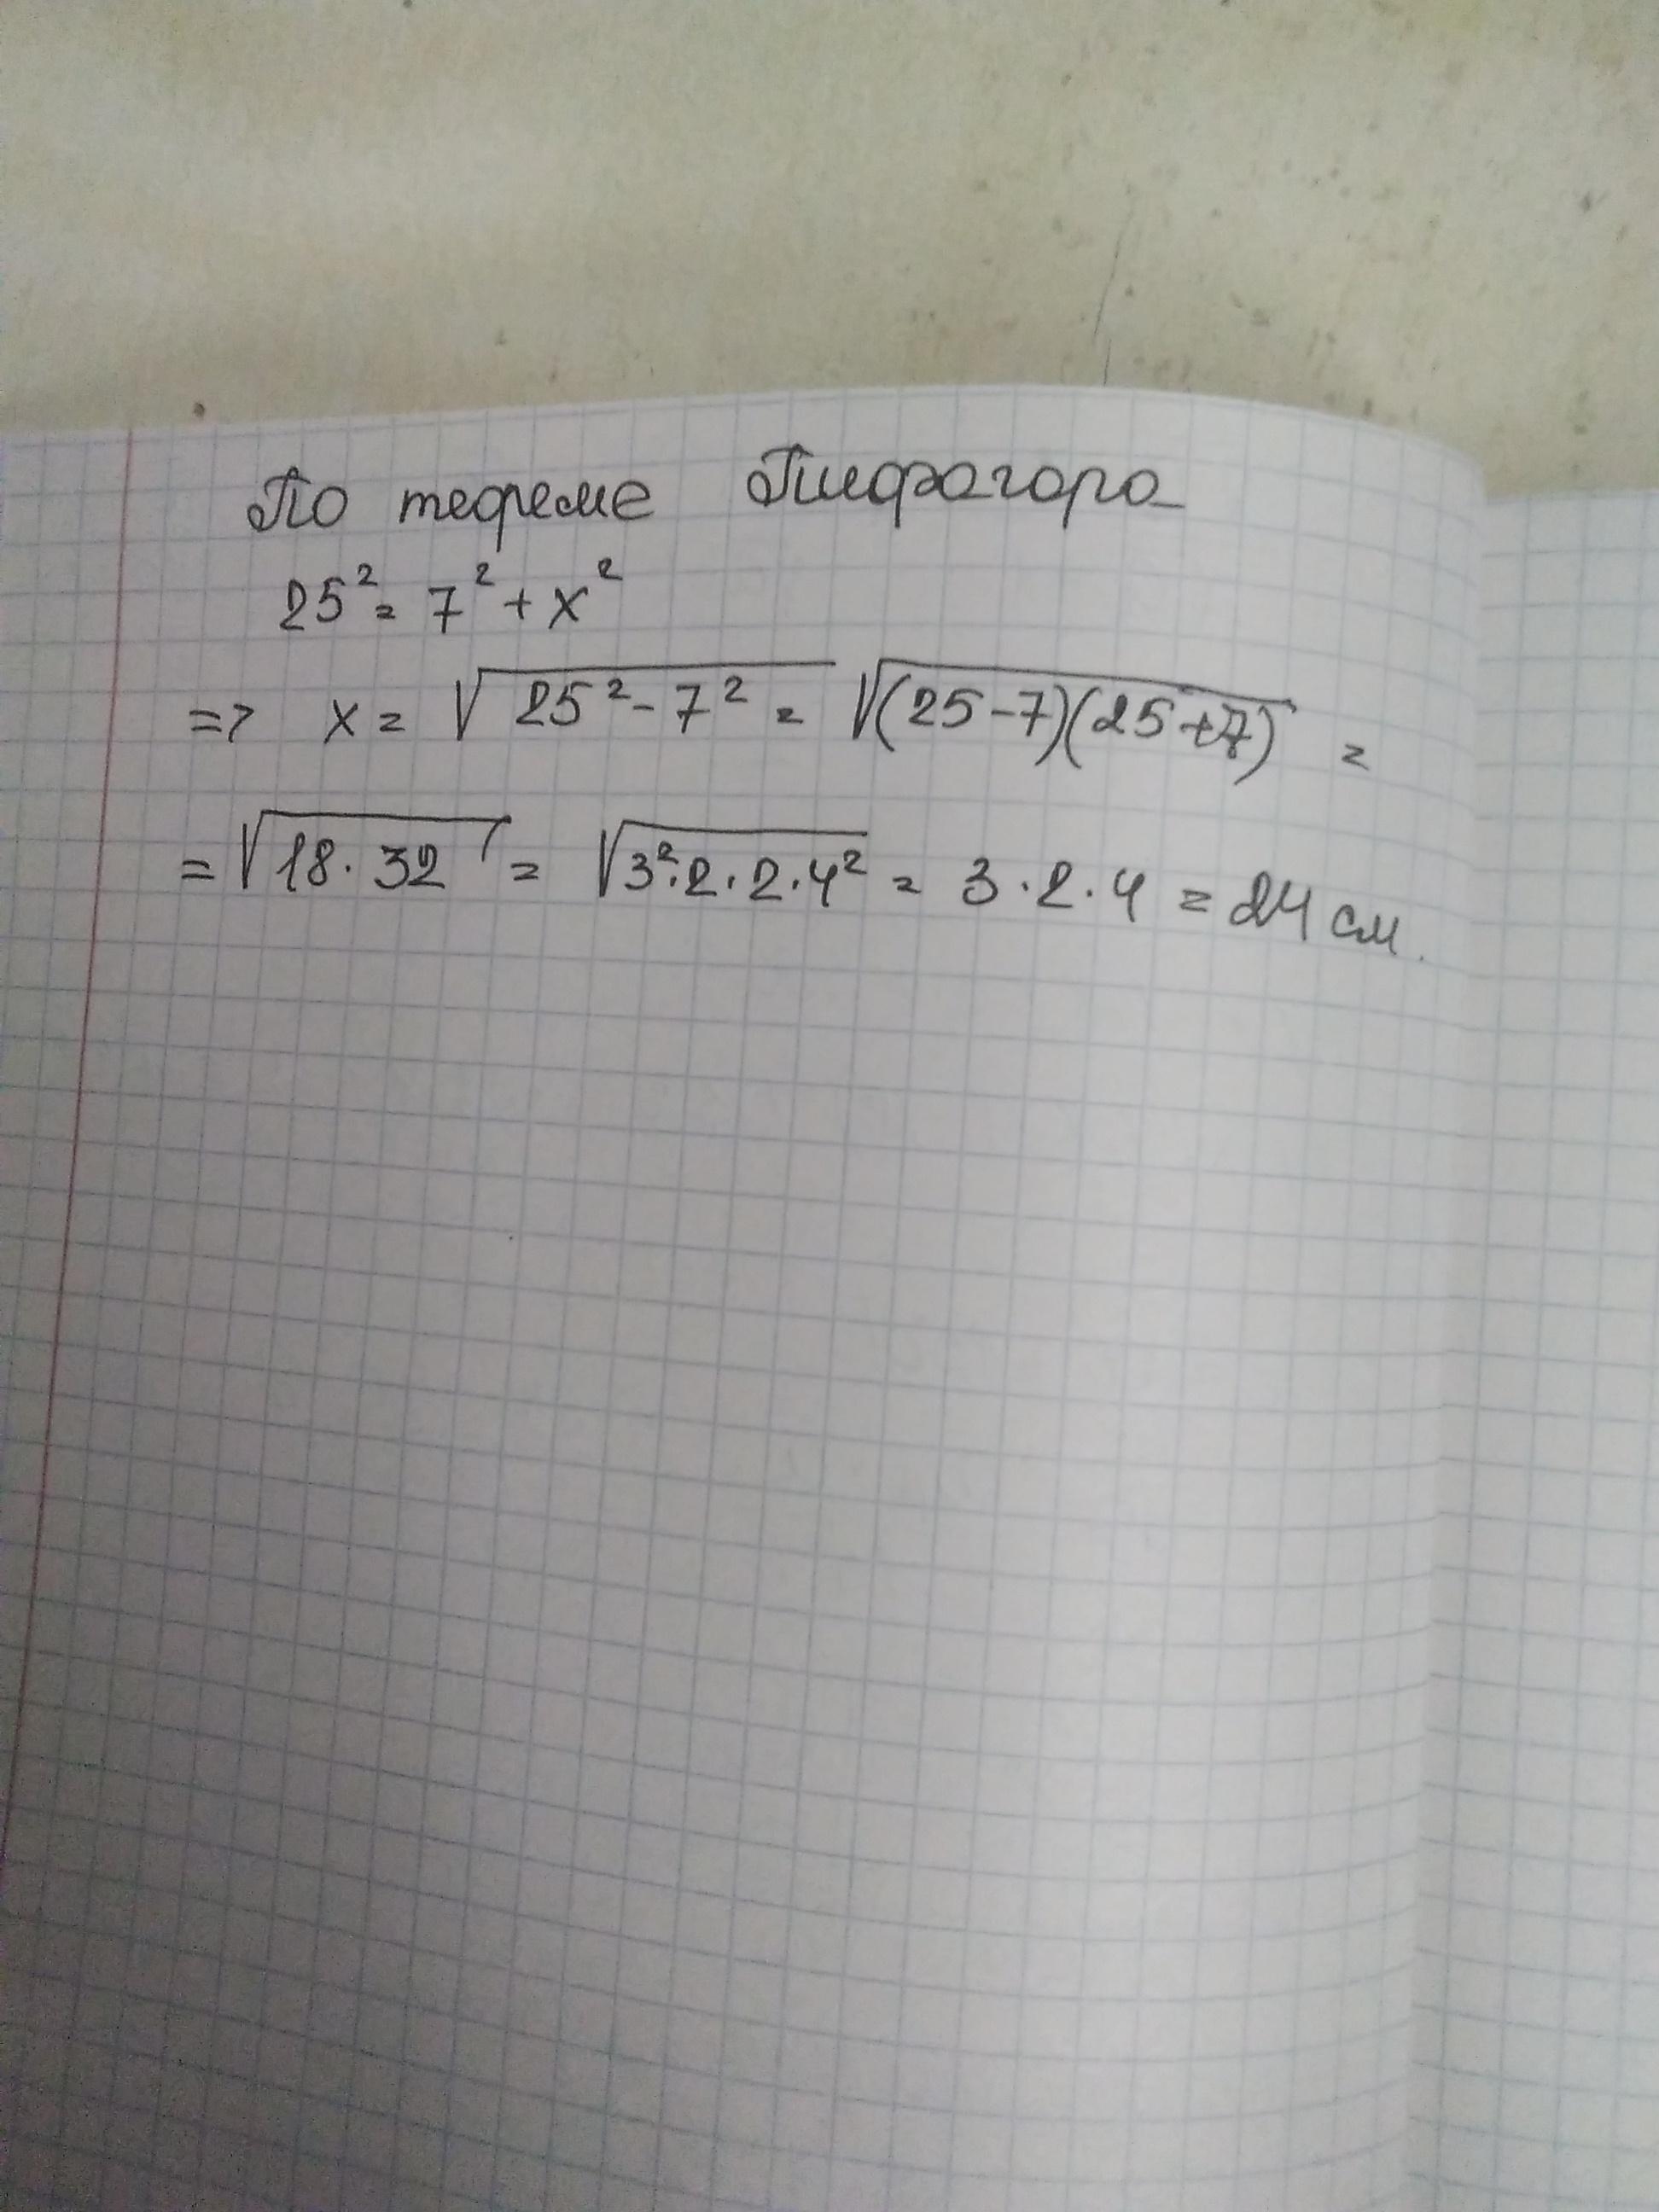 По теореме Пифагора
25² = 7² + x²
=> x = √(25² - 7²) = √((25-7)(25+7)) =
= √(18 · 32) = √(3² · 2 · 2 · 4²) = 3 · 2 · 4 = 24 см.